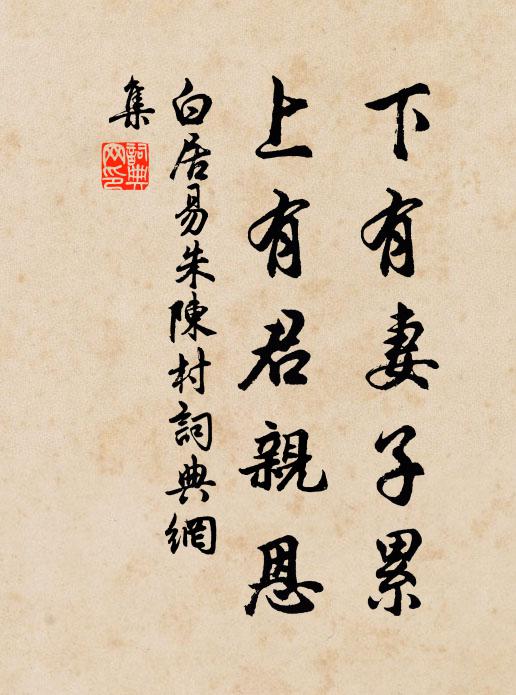 下有妻子累
上有君親恩
白居易朱陳村詞典網
集
詞典網印